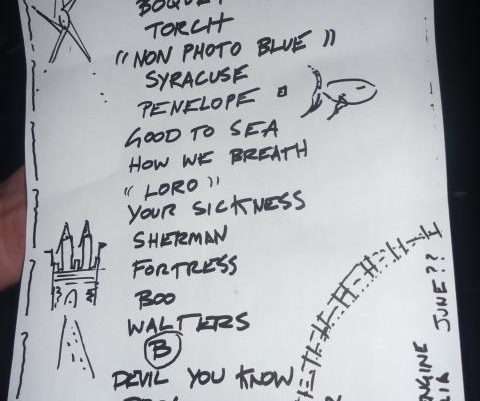 BOQUET
TORCH
"NON PHOTO BLUE"
SYRACUSE
PENELOPE
GOOD TO SEA
HOW WE BREATH
"LORO"
YOUR SICKNESS
SHERMAN
FORTRESS
BOO
WALTERS
B
DEVIL YOU KNOW
JUNE??